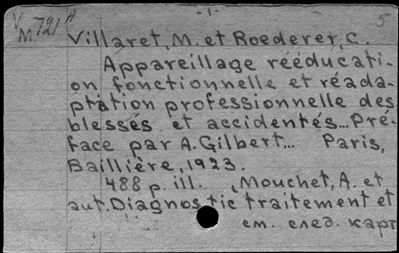 -1-
5
V
M.721
Villaret, M. et Roederer, C.
Appareillage rééducati-
on fonctionnelle et réada-
ptation professionnelle des
blessés et accidentés... Pré-
face par A. Gilbert... Paris,
Baillière, 1923.
488 p. ill. Mouchet, A. et
aut. Diagnostic traitement et
см. след. карт